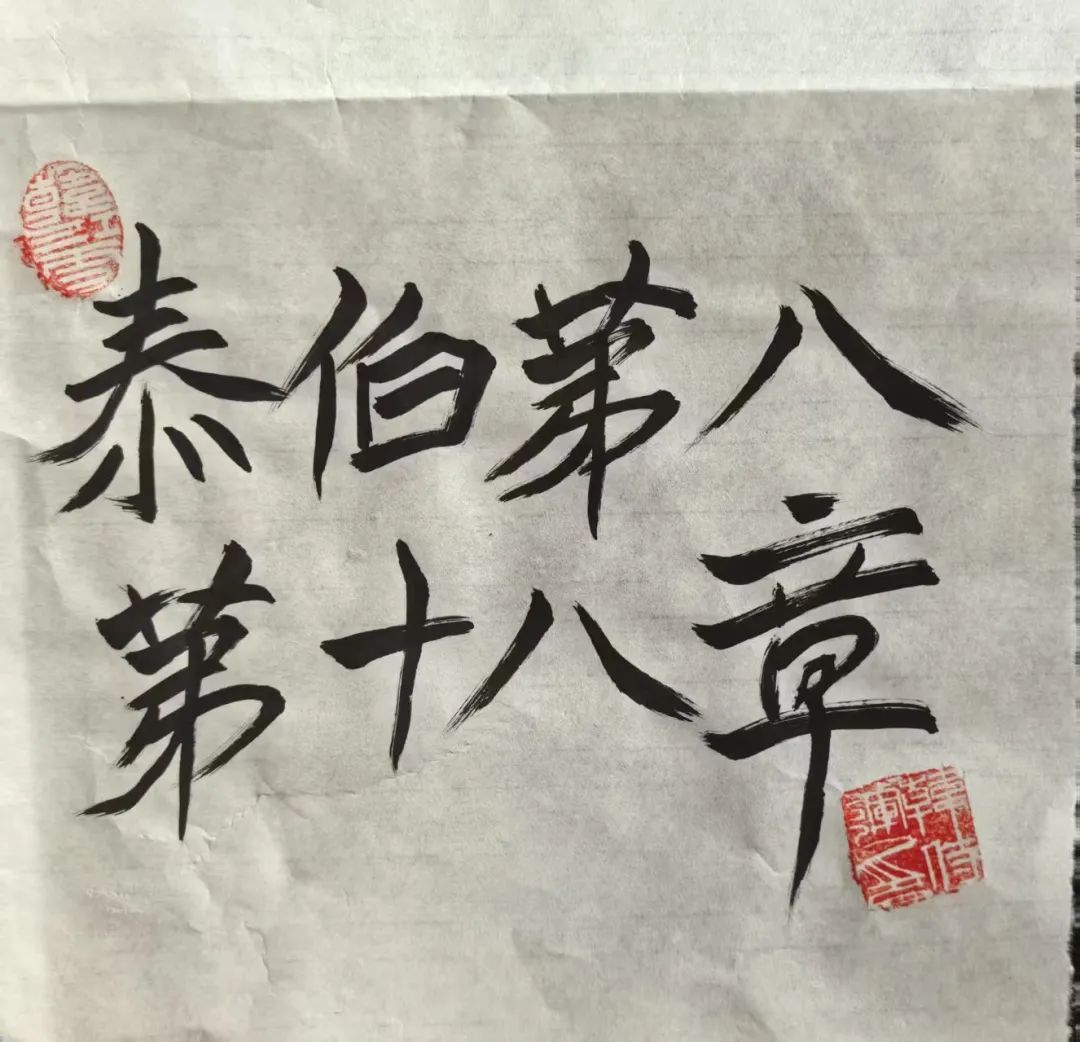 泰伯第八
第十八章